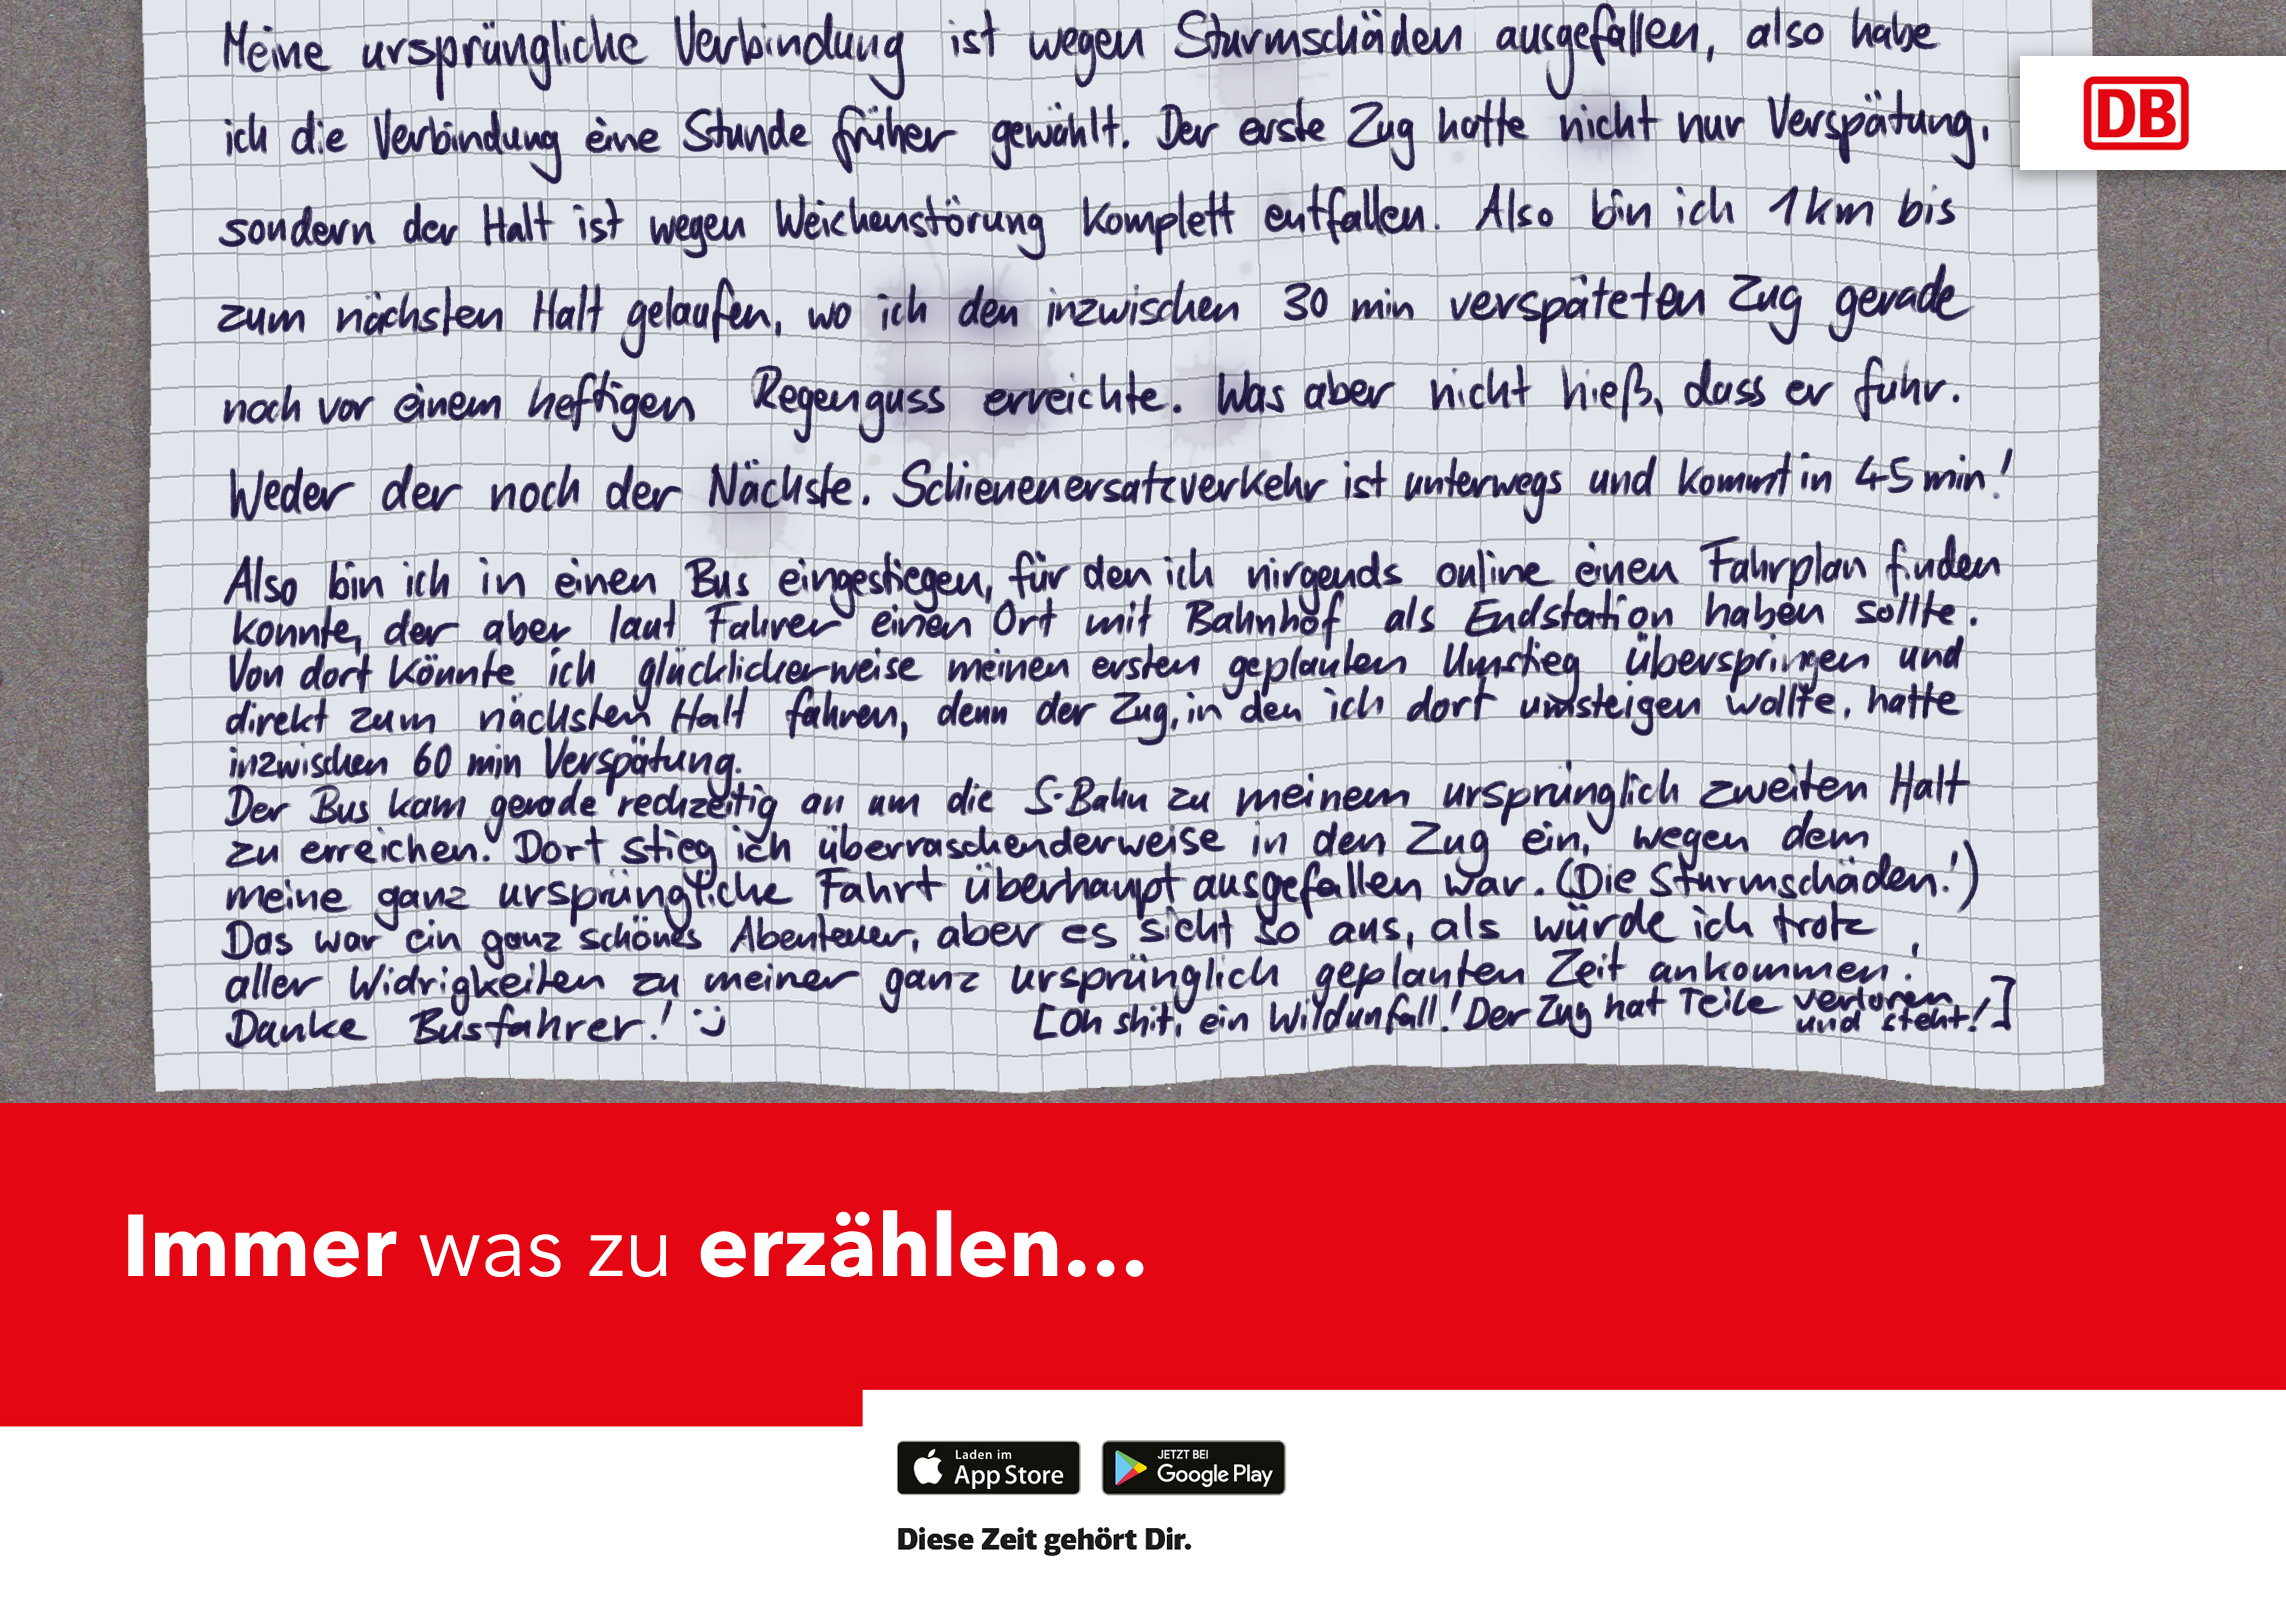 Meine ursprüngliche Verbindung ist wegen Sturmschäden ausgefallen, also habe
DB
ich die Verbindung eine Stunde früher gewählt. Der erste Zug hatte nicht nur Verspätung,
sondern der Halt ist wegen Weichenstörung komplett entfallen. Also bin ich 1km bis
zum nächsten Halt gelaufen, wo ich den inzwischen 30 min verspäteten Zug gerade
noch vor einem heftigen Regenguss erreichte. Was aber nicht hieß, dass er fuhr.
Weder der noch der Nächste. Schienenersatzverkehr ist unterwegs und kommt in 45 min!
Also bin ich in einen Bus eingestiegen, für den ich nirgends online einen Fahrplan finden
konnte, der aber laut Fahrer einen Ort mit Bahnhof als Endstation haben sollte.
Von dort könnte ich glücklicherweise meinen ersten geplanten Umstieg überspringen und
direkt zum nächsten Halt fahren, denn der Zug, in den ich dort umsteigen wollte, hatte
inzwischen 60 min Verspätung.
Der Bus kam gerade rechzeitig an um die S-Bahn zu meinem ursprünglich zweiten Halt
zu erreichen. Dort stieg ich überraschenderweise in den Zug ein, wegen dem
meine ganz ursprüngliche Fahrt überhaupt ausgefallen war. (Die Sturmschäden!)
Das war ein ganz schönes Abenteuer, aber es sieht so aus, als würde ich trotz
aller Widrigkeiten zu meiner ganz ursprünglich geplanten Zeit ankommen!
Danke Busfahrer! :) [Oh shit, ein Wildunfall! Der Zug hat Teile verloren
und steht!]
Immer was zu erzählen...
Laden im
App Store
JETZT BEI
Google Play
Diese Zeit gehört Dir.